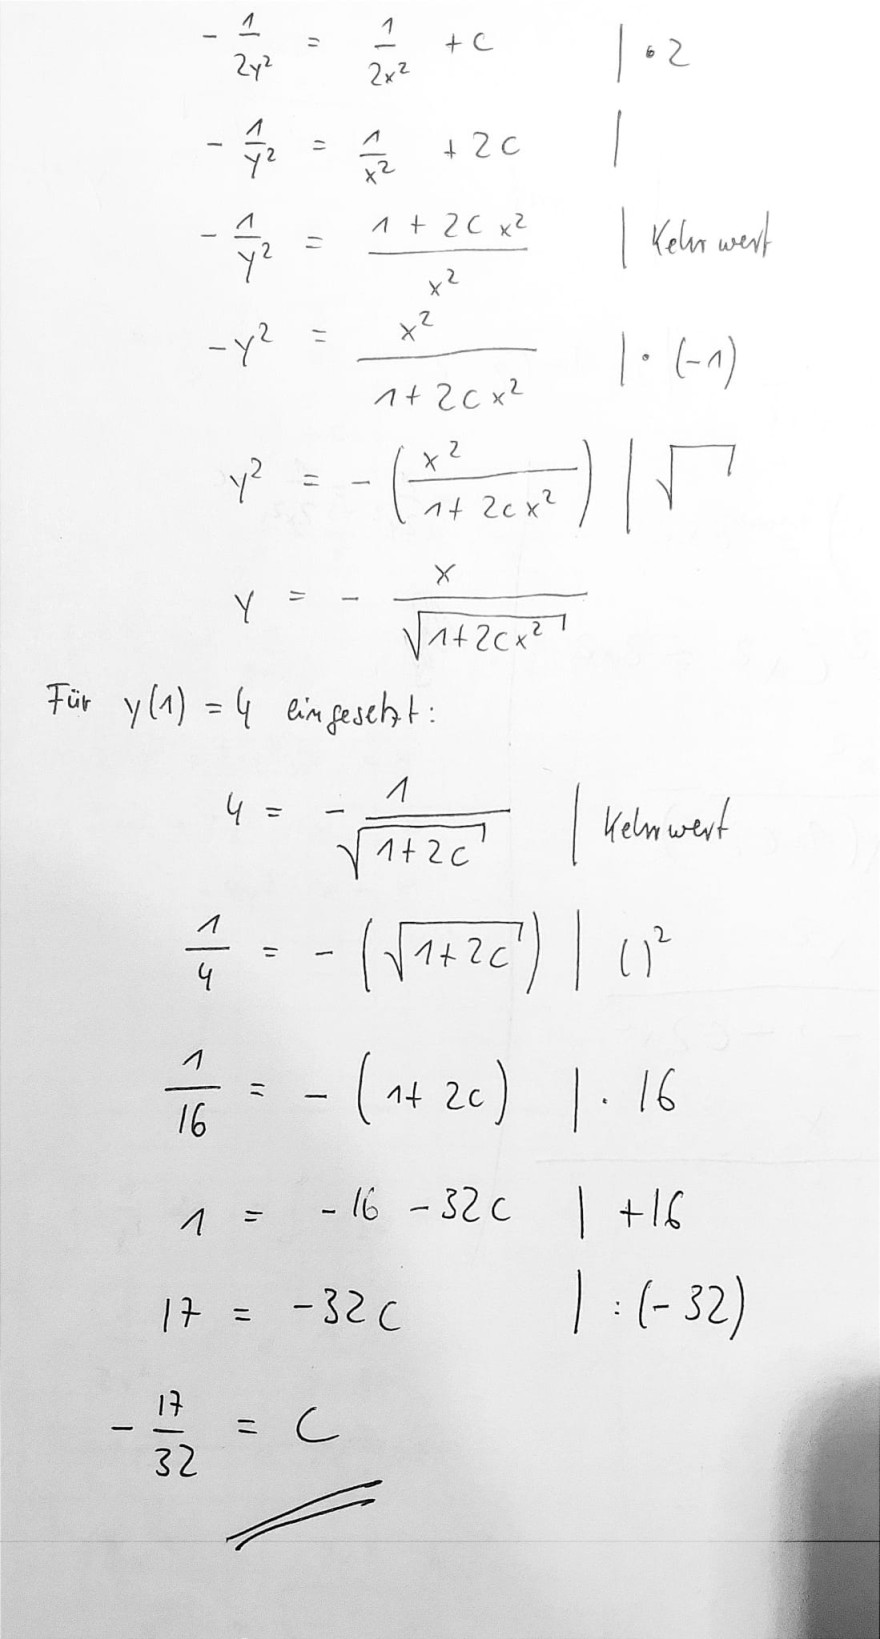 - 1/(2y²) = 1/(2x²) + C | · 2
- 1/y² = 1/x² + 2C |
- 1/y² = (1 + 2Cx²)/x² | Kehrwert
-y² = x²/(1 + 2Cx²) | · (-1)
y² = - (x²/(1 + 2Cx²)) | √
y = - x/√(1+2Cx²)
Für y(1) = 4 eingesetzt:
4 = - 1/√(1+2C) | Kehrwert
1/4 = - (√(1+2C)) | ()²
1/16 = - (1+ 2C) | · 16
1 = -16 - 32C | +16
17 = -32C | : (-32)
- 17/32 = C